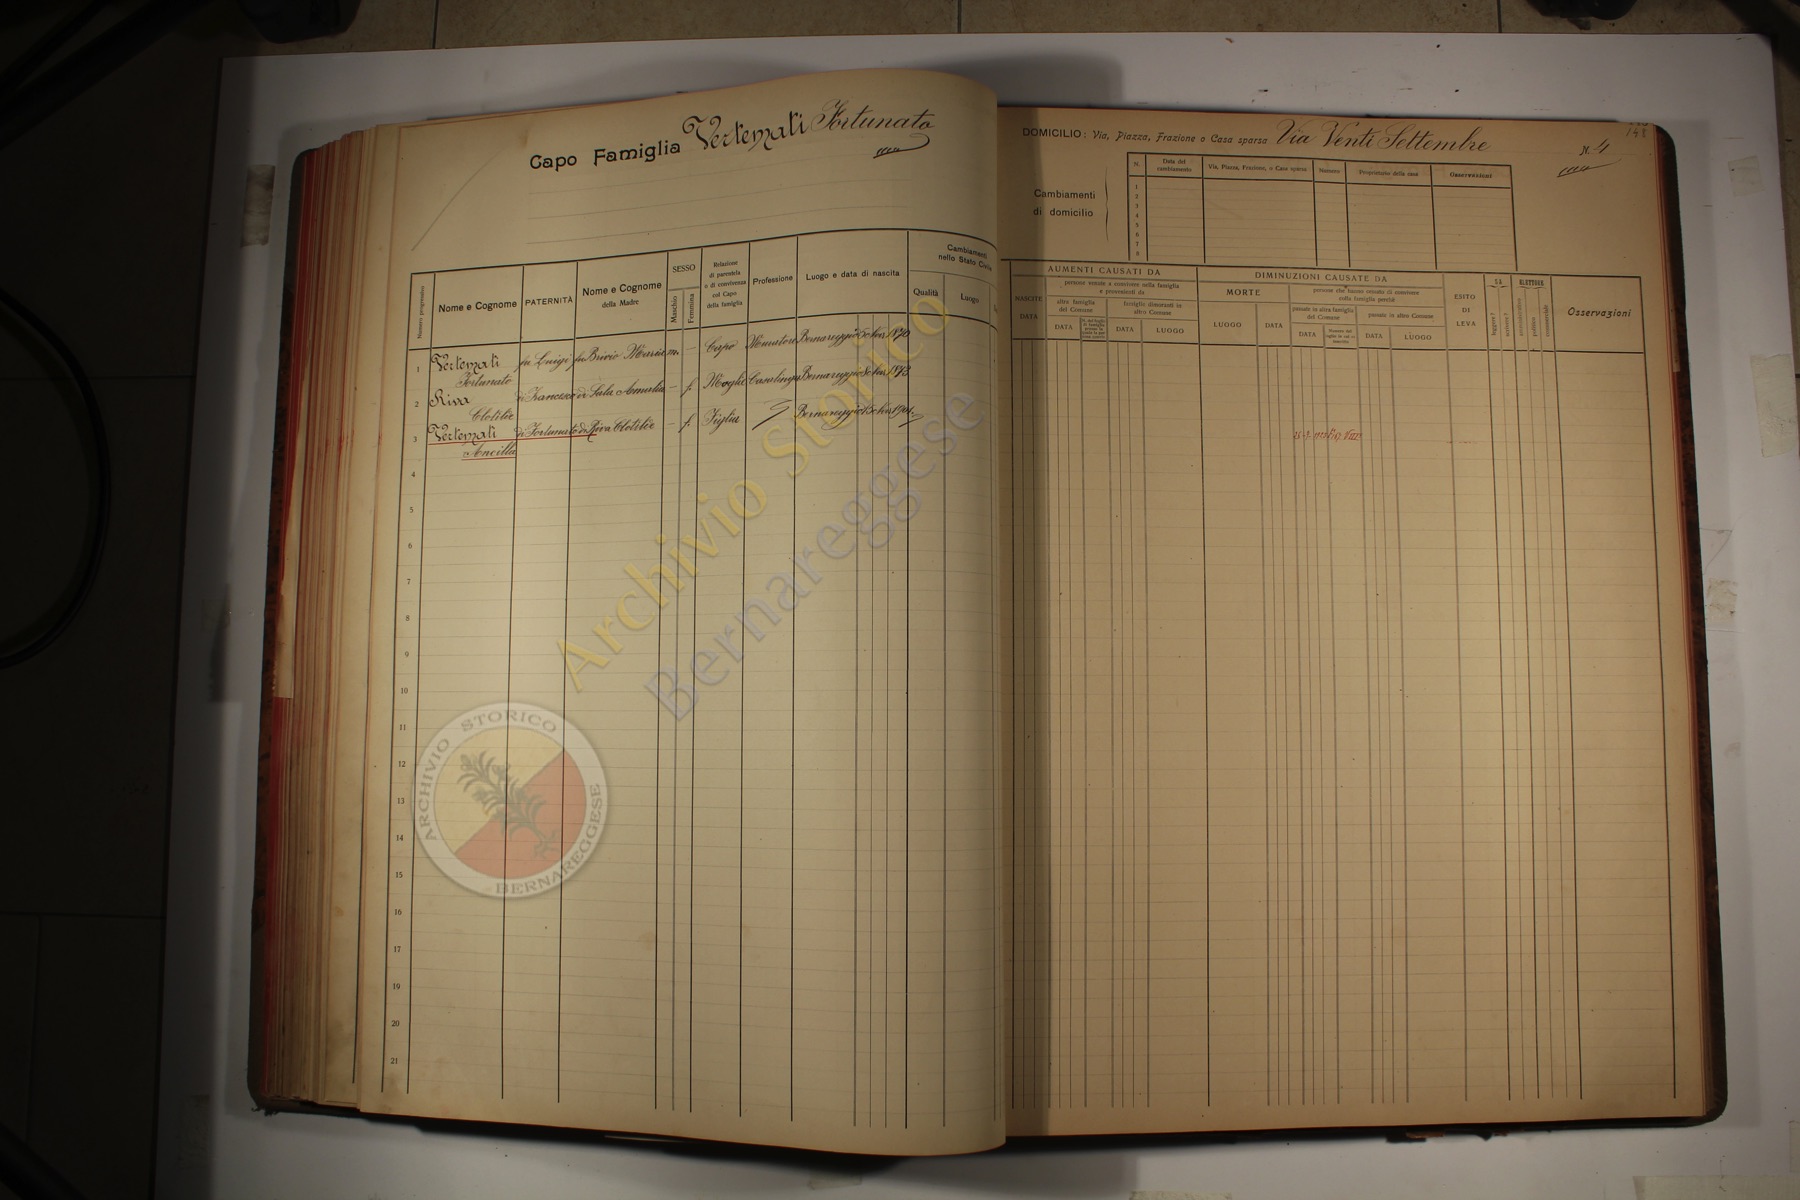 Capo Famiglia Vertemati Fortunato
Numero progressivo
Nome e Cognome
PATERNITÀ
Nome e Cognome
della Madre
SESSO
Maschio
Femmina
Relazione
di parentela
o di convivenza
col Capo
della famiglia
Professione
Luogo e data di nascita
Cambiamenti
nello Stato Civile
Qualità
Luogo
1 Vertemati fu Luigi fu Brivio Maria m. - Capo Muratore Bernareggio
Fortunato
2 Riva di Francesco di Sala Amalia - f. Moglie Casalinga Bernareggio
Clotilde
3 Vertemati di Fortunato di Riva Clotilde - f. Figlia Bernareggio
Ancilla
4
5
6
7
8
9
10
11
12
13
14
15
16
17
18
19
20
21
DOMICILIO: Via, Piazza, Frazione o Casa sparsa Via Venti Settembre N. 4
148
Cambiamenti
di domicilio
N.
Data del
cambiamento
Via, Piazza, Frazione, o Casa sparsa
Numero
Proprietario della casa
Osservazioni
1
2
3
4
5
6
7
8
AUMENTI CAUSATI DA
NASCITE
DATA
persone venute a convivere nella famiglia
e provenienti da
altre famiglie
del Comune
DATA
famiglie dimoranti in
altro Comune
DATA
LUOGO
DIMINUZIONI CAUSATE DA
MORTE
LUOGO
DATA
persone che hanno cessato di convivere
colla famiglia perchè
passate in altre famiglie
del Comune
DATA
passate in altro Comune
DATA
LUOGO
ESITO
DI
LEVA
SA
leggere?
scrivere?
ELETTORE
amministrativo
politico
commerciale
Osservazioni
Archivio Storico
Bernareggese
ARCHIVIO STORICO
BERNAREGGESE